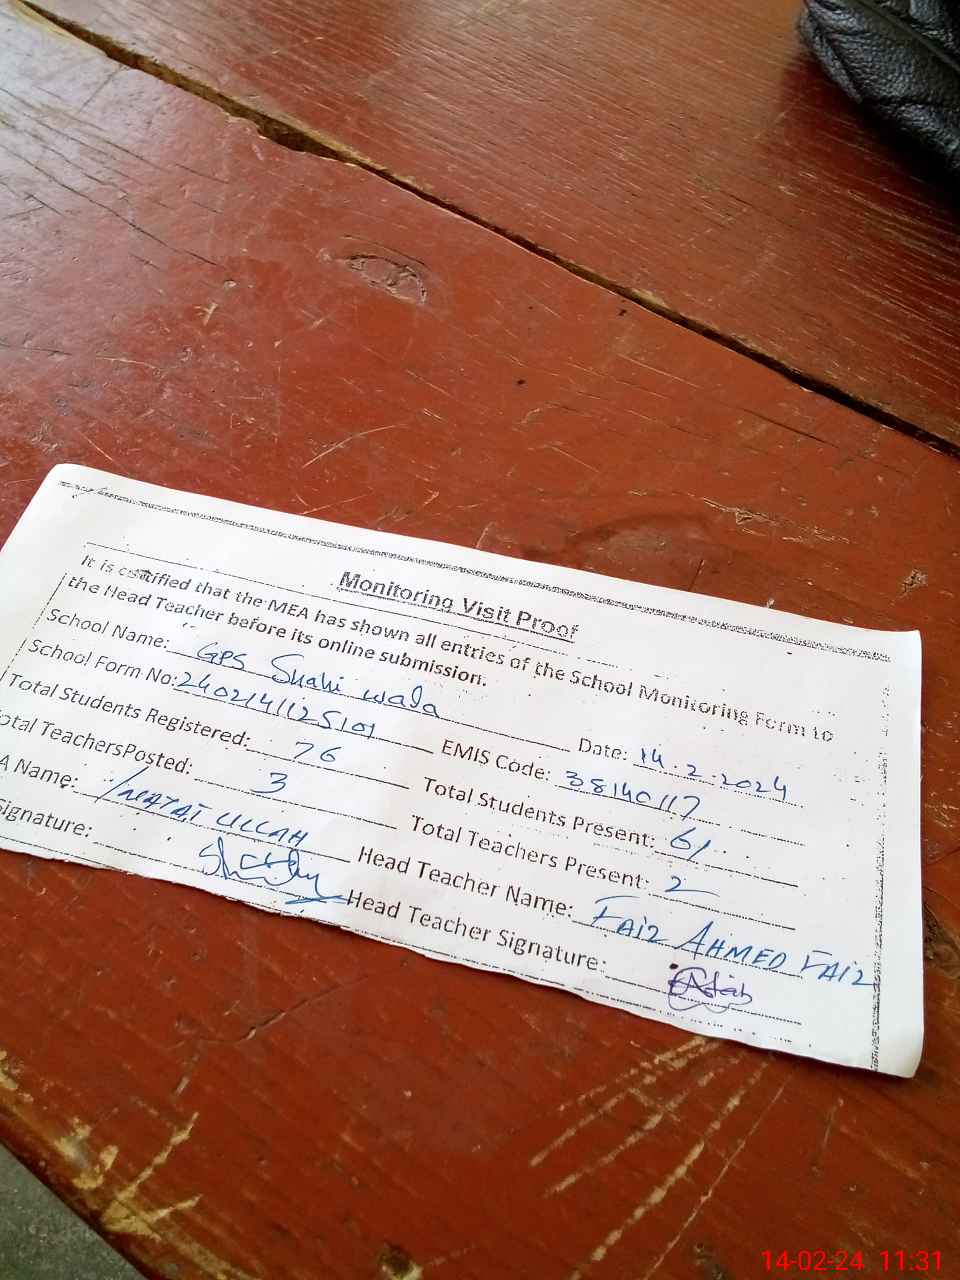 Monitoring Visit Proof
It is certified that the MEA has shown all entries of the School Monitoring Form to
the Head Teacher before its online submission.
School Name: GPS Shahi wala Date: 14.2.2024
School Form No: 2402141125101 EMIS Code: 38140117
Total Students Registered: 76 Total Students Present: 61
otal TeachersPosted: 3 Total Teachers Present: 2
A Name: INAYAT ULLAH Head Teacher Name: FAIZ AHMED FAIZ
Signature: Head Teacher Signature:
14-02-24 11:31